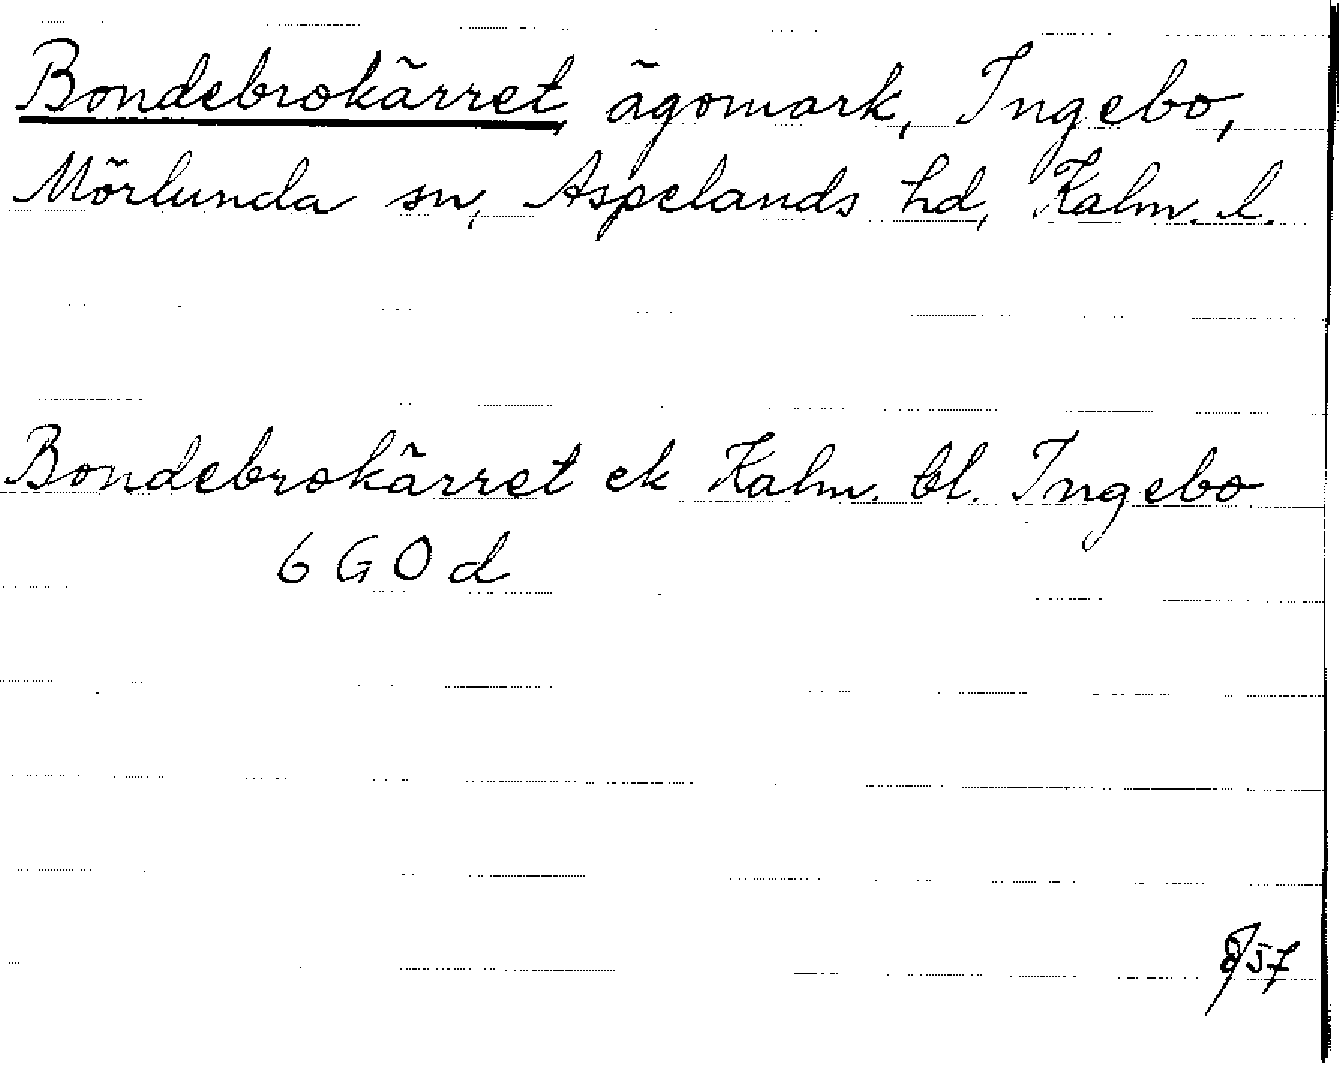 Bondebrokärret, ägomark, Ingebo,
Mörlunda sn, Aspelands hd, Kalm. l.
Bondebrokärret ek Kalm. bl. Ingebo
6 G 0 d
8/57